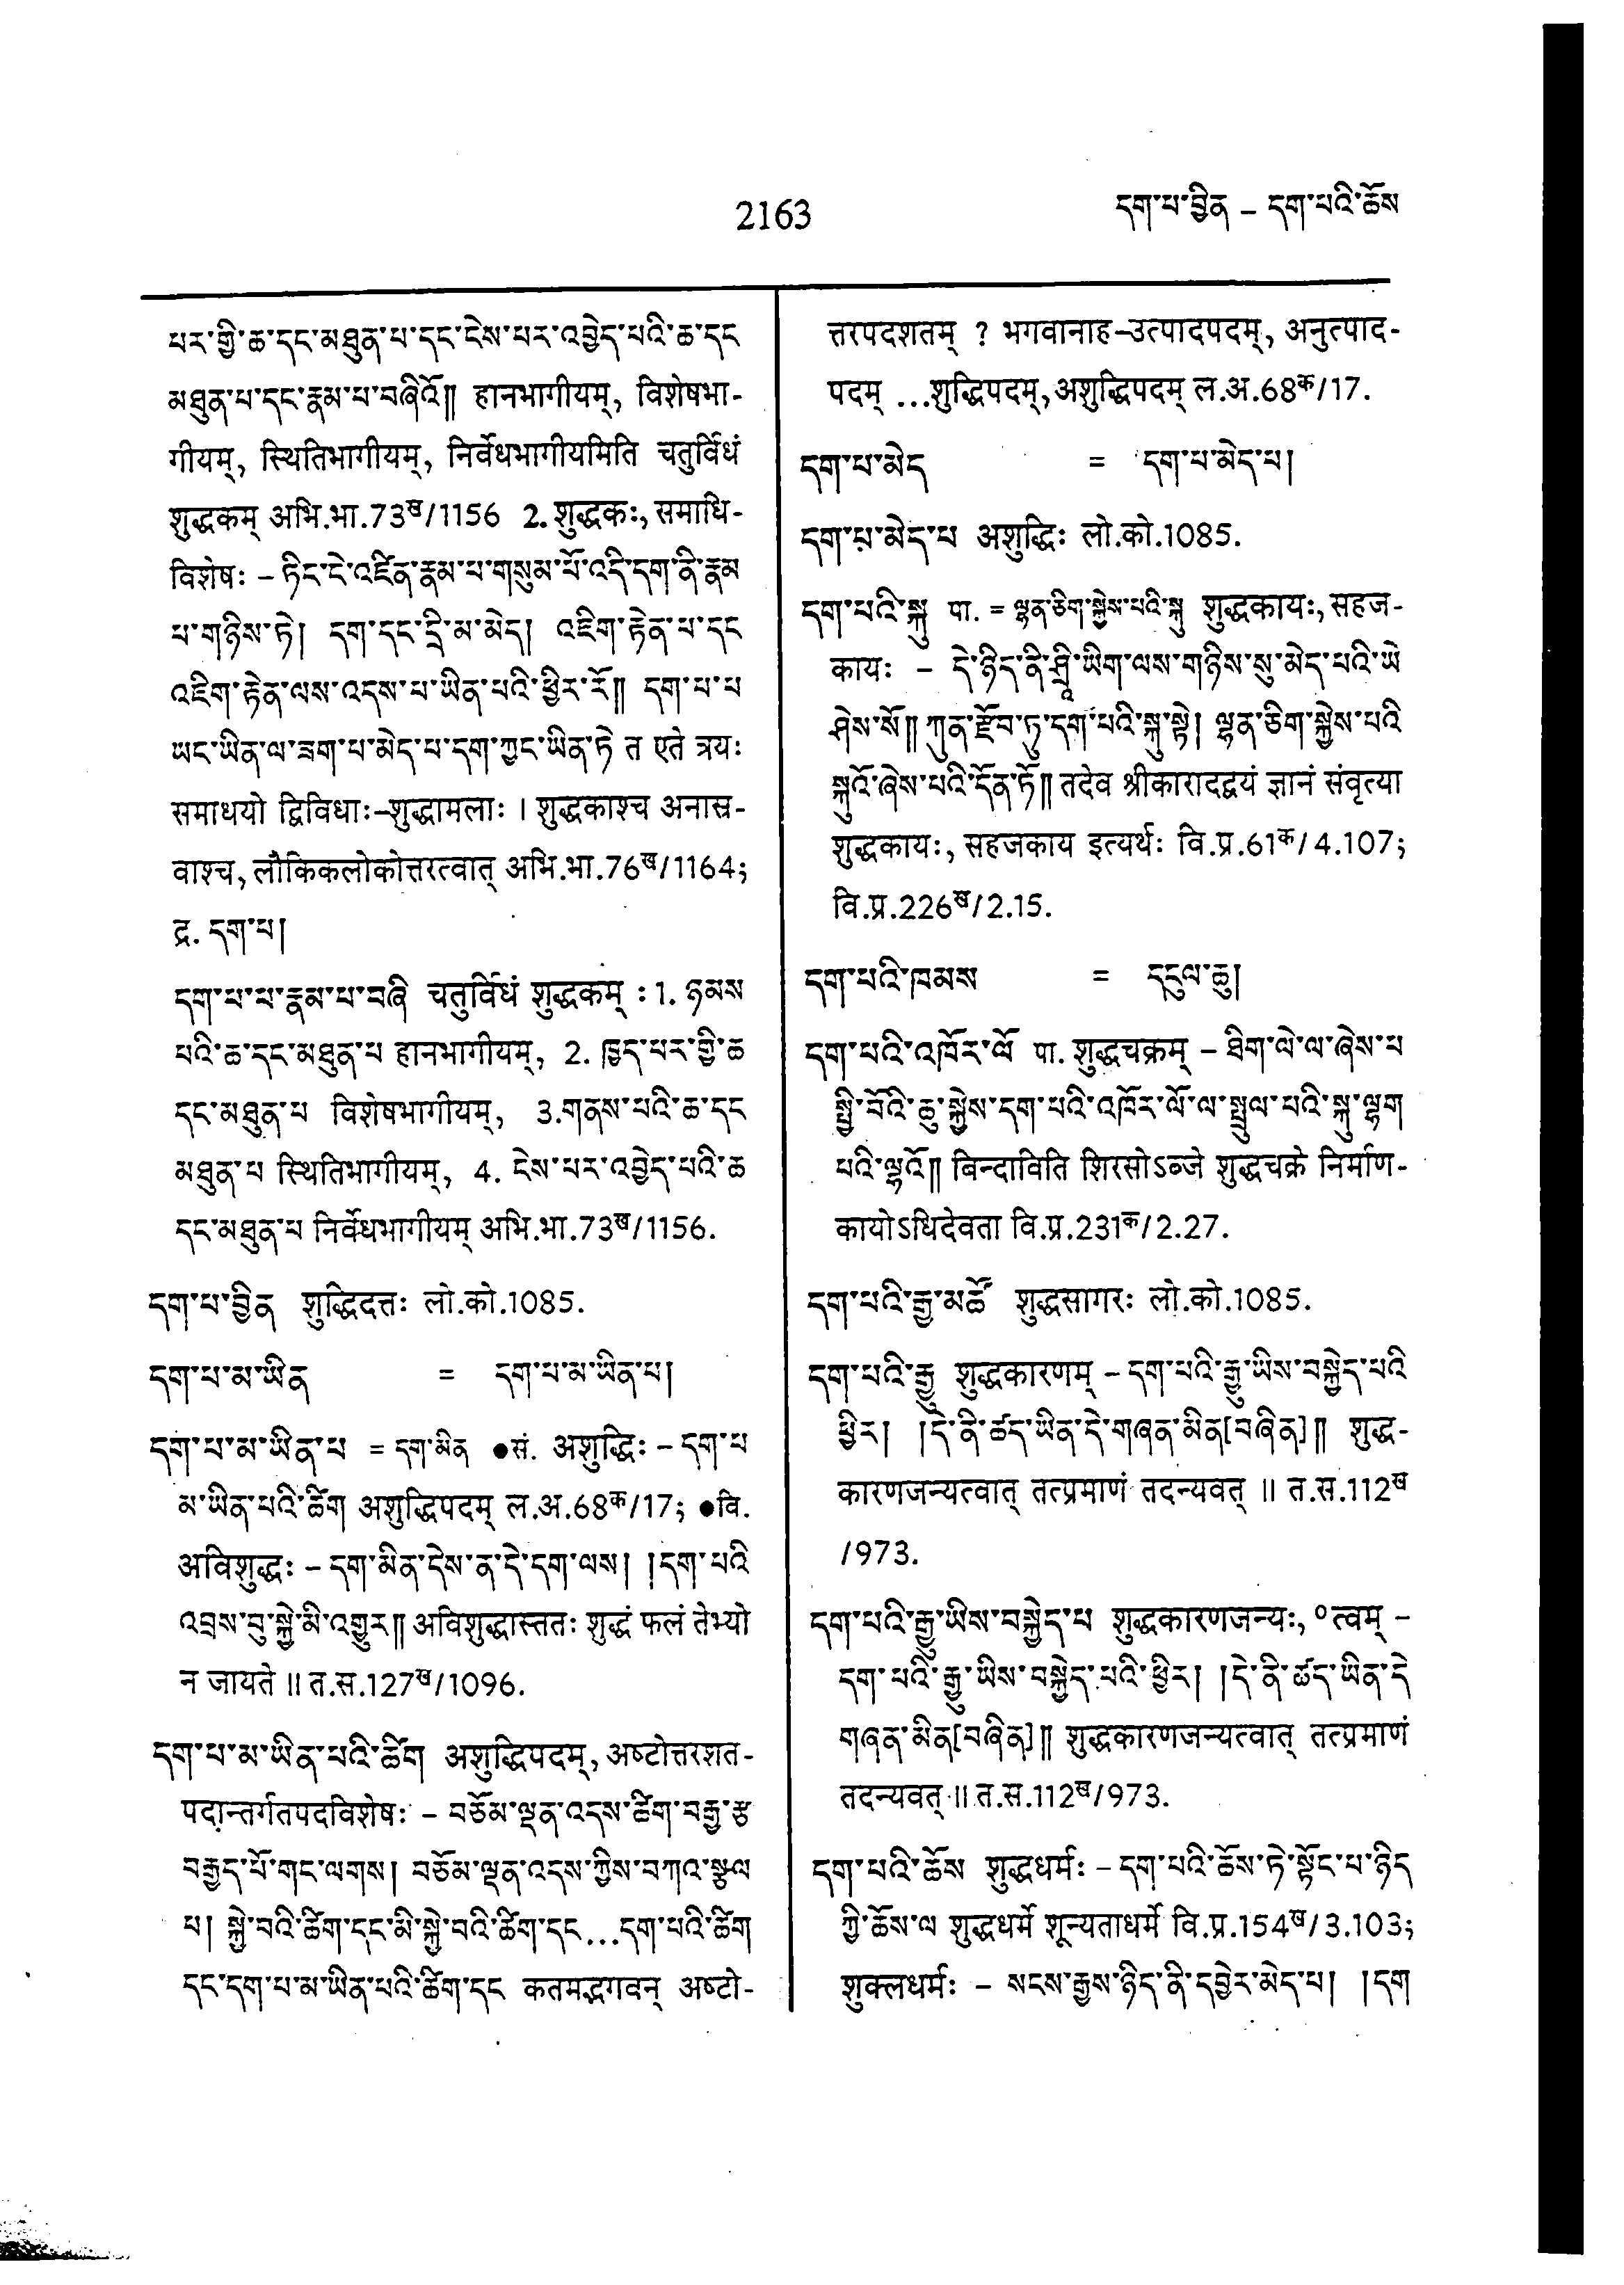 2163
དག་པ་བྱིན – དག་པའི་ཆོས
པར་གྱི་ཆ་དང་མཐུན་པ་དང་ངེས་པར་འབྱེད་པའི་ཆ་དང
མཐུན་པ་དང་རྣམ་པ་བཞིའོ༎ हानभागीयम्, विशेषभा-
गीयम्, स्थितिभागीयम्, निर्वेधभागीयमिति चतुर्विधं
शुद्धकम् अभि.भा.73ख/1156 2. शुद्धकः, समाधि-
विशेषः – ཏིང་ངེ་འཛིན་རྣམ་པ་གསུམ་པོ་འདི་དག་ནི་རྣམ
པ་གཉིས་ཏེ། དག་དང་དྲི་མ་མེད། འཇིག་རྟེན་པ་དང
འཇིག་རྟེན་ལས་འདས་པ་ཡིན་པའི་ཕྱིར་རོ༎ དག་པ་པ
ཡང་ཡིན་ལ་ཟག་པ་མེད་པ་དག་ཀྱང་ཡིན་ཏེ त एते त्रयः
समाधयो द्विविधाः–शुद्धामलाः । शुद्धकाश्च अनास्र-
वाश्च, लौकिकलोकोत्तरत्वात् अभि.भा.76ख/1164;
द्र. དག་པ།
དག་པ་པ་རྣམ་པ་བཞི चतुर्विधं शुद्धकम् : 1. ཉམས
པའི་ཆ་དང་མཐུན་པ हानभागीयम्, 2. ཁྱད་པར་གྱི་ཆ
དང་མཐུན་པ विशेषभागीयम्, 3.གནས་པའི་ཆ་དང
མཐུན་པ स्थितिभागीयम्, 4. ངེས་པར་འབྱེད་པའི་ཆ
དང་མཐུན་པ निर्वेधभागीयम् अभि.भा.73ख/1156.
དག་པ་བྱིན शुद्धिदत्तः लो.को.1085.
དག་པ་མ་ཡིན = དག་པ་མ་ཡིན་པ།
དག་པ་མ་ཡིན་པ = དག་མིན ●सं. अशुद्धिः – དག་པ
མ་ཡིན་པའི་ཚིག अशुद्धिपदम् ल.अ.68क/17; ●वि.
अविशुद्धः – དག་མིན་དེས་ན་དེ་དག་ལས། །དག་པའི
འབྲས་བུ་སྐྱེ་མི་འགྱུར༎ अविशुद्धास्ततः शुद्धं फलं तेभ्यो
न जायते ॥ त.स.127ख/1096.
དག་པ་མ་ཡིན་པའི་ཚིག अशुद्धिपदम्, अष्टोत्तरशत-
पदान्तर्गतपदविशेषः – བཅོམ་ལྡན་འདས་ཚིག་བརྒྱ་རྩ
བརྒྱད་པོ་གང་ལགས། བཅོམ་ལྡན་འདས་ཀྱིས་བཀའ་སྩལ
པ། སྐྱེ་བའི་ཚིག་དང་མི་སྐྱེ་བའི་ཚིག་དང...དག་པའི་ཚིག
དང་དག་པ་མ་ཡིན་པའི་ཚིག་དང कतमद्भगवन् अष्टो-
त्तरपदशतम् ? भगवानाह–उत्पादपदम्, अनुत्पाद-
पदम् ...शुद्धिपदम्, अशुद्धिपदम् ल.अ.68क/17.
དག་པ་མེད = དག་པ་མེད་པ།
དག་པ་མེད་པ अशुद्धिः लो.को.1085.
དག་པའི་སྐུ पा. = ལྷན་ཅིག་སྐྱེས་པའི་སྐུ शुद्धकायः, सहज-
कायः – དེ་ཉིད་ནི་ཤྲཱི་ཡིག་ལས་གཉིས་སུ་མེད་པའི་ཡེ
ཤེས་སོ༎ ཀུན་རྫོབ་ཏུ་དག་པའི་སྐུ་སྟེ། ལྷན་ཅིག་སྐྱེས་པའི
སྐུའོ་ཞེས་པའི་དོན་ཏོ༎ तदेव श्रीकारादद्वयं ज्ञानं संवृत्या
शुद्धकायः, सहजकाय इत्यर्थः वि.प्र.61क/4.107;
वि.प्र.226ख/2.15.
དག་པའི་ཁམས = དངུལ་ཆུ།
དག་པའི་འཁོར་ལོ पा. शुद्धचक्रम् – ཐིག་ལེ་ལ་ཞེས་པ
སྤྱི་བོའི་ཆུ་སྐྱེས་དག་པའི་འཁོར་ལོ་ལ་སྤྲུལ་པའི་སྐུ་ལྷག
པའི་ལྷའོ༎ बिन्दाविति शिरसोऽब्जे शुद्धचक्रे निर्माण-
कायोऽधिदेवता वि.प्र.231क/2.27.
དག་པའི་རྒྱ་མཚོ शुद्धसागरः लो.को.1085.
དག་པའི་རྒྱུ शुद्धकारणम् – དག་པའི་རྒྱུ་ཡིས་བསྐྱེད་པའི
ཕྱིར། །དེ་ནི་ཚད་ཡིན་དེ་གཞན་མིན[བཞིན]༎ शुद्ध-
कारणजन्यत्वात् तत्प्रमाणं तदन्यवत् ॥ त.स.112ख
/973.
དག་པའི་རྒྱུ་ཡིས་བསྐྱེད་པ शुद्धकारणजन्यः, ०त्वम् –
དག་པའི་རྒྱུ་ཡིས་བསྐྱེད་པའི་ཕྱིར། །དེ་ནི་ཚད་ཡིན་དེ
གཞན་མིན[བཞིན]༎ शुद्धकारणजन्यत्वात् तत्प्रमाणं
तदन्यवत् ॥ त.स.112ख/973.
དག་པའི་ཆོས शुद्धधर्मः – དག་པའི་ཆོས་ཏེ་སྟོང་པ་ཉིད
ཀྱི་ཆོས་ལ शुद्धधर्मे शून्यताधर्मे वि.प्र.154ख/3.103;
शुक्लधर्मः – སངས་རྒྱས་ཉིད་ནི་དབྱེར་མེད་པ། །དག